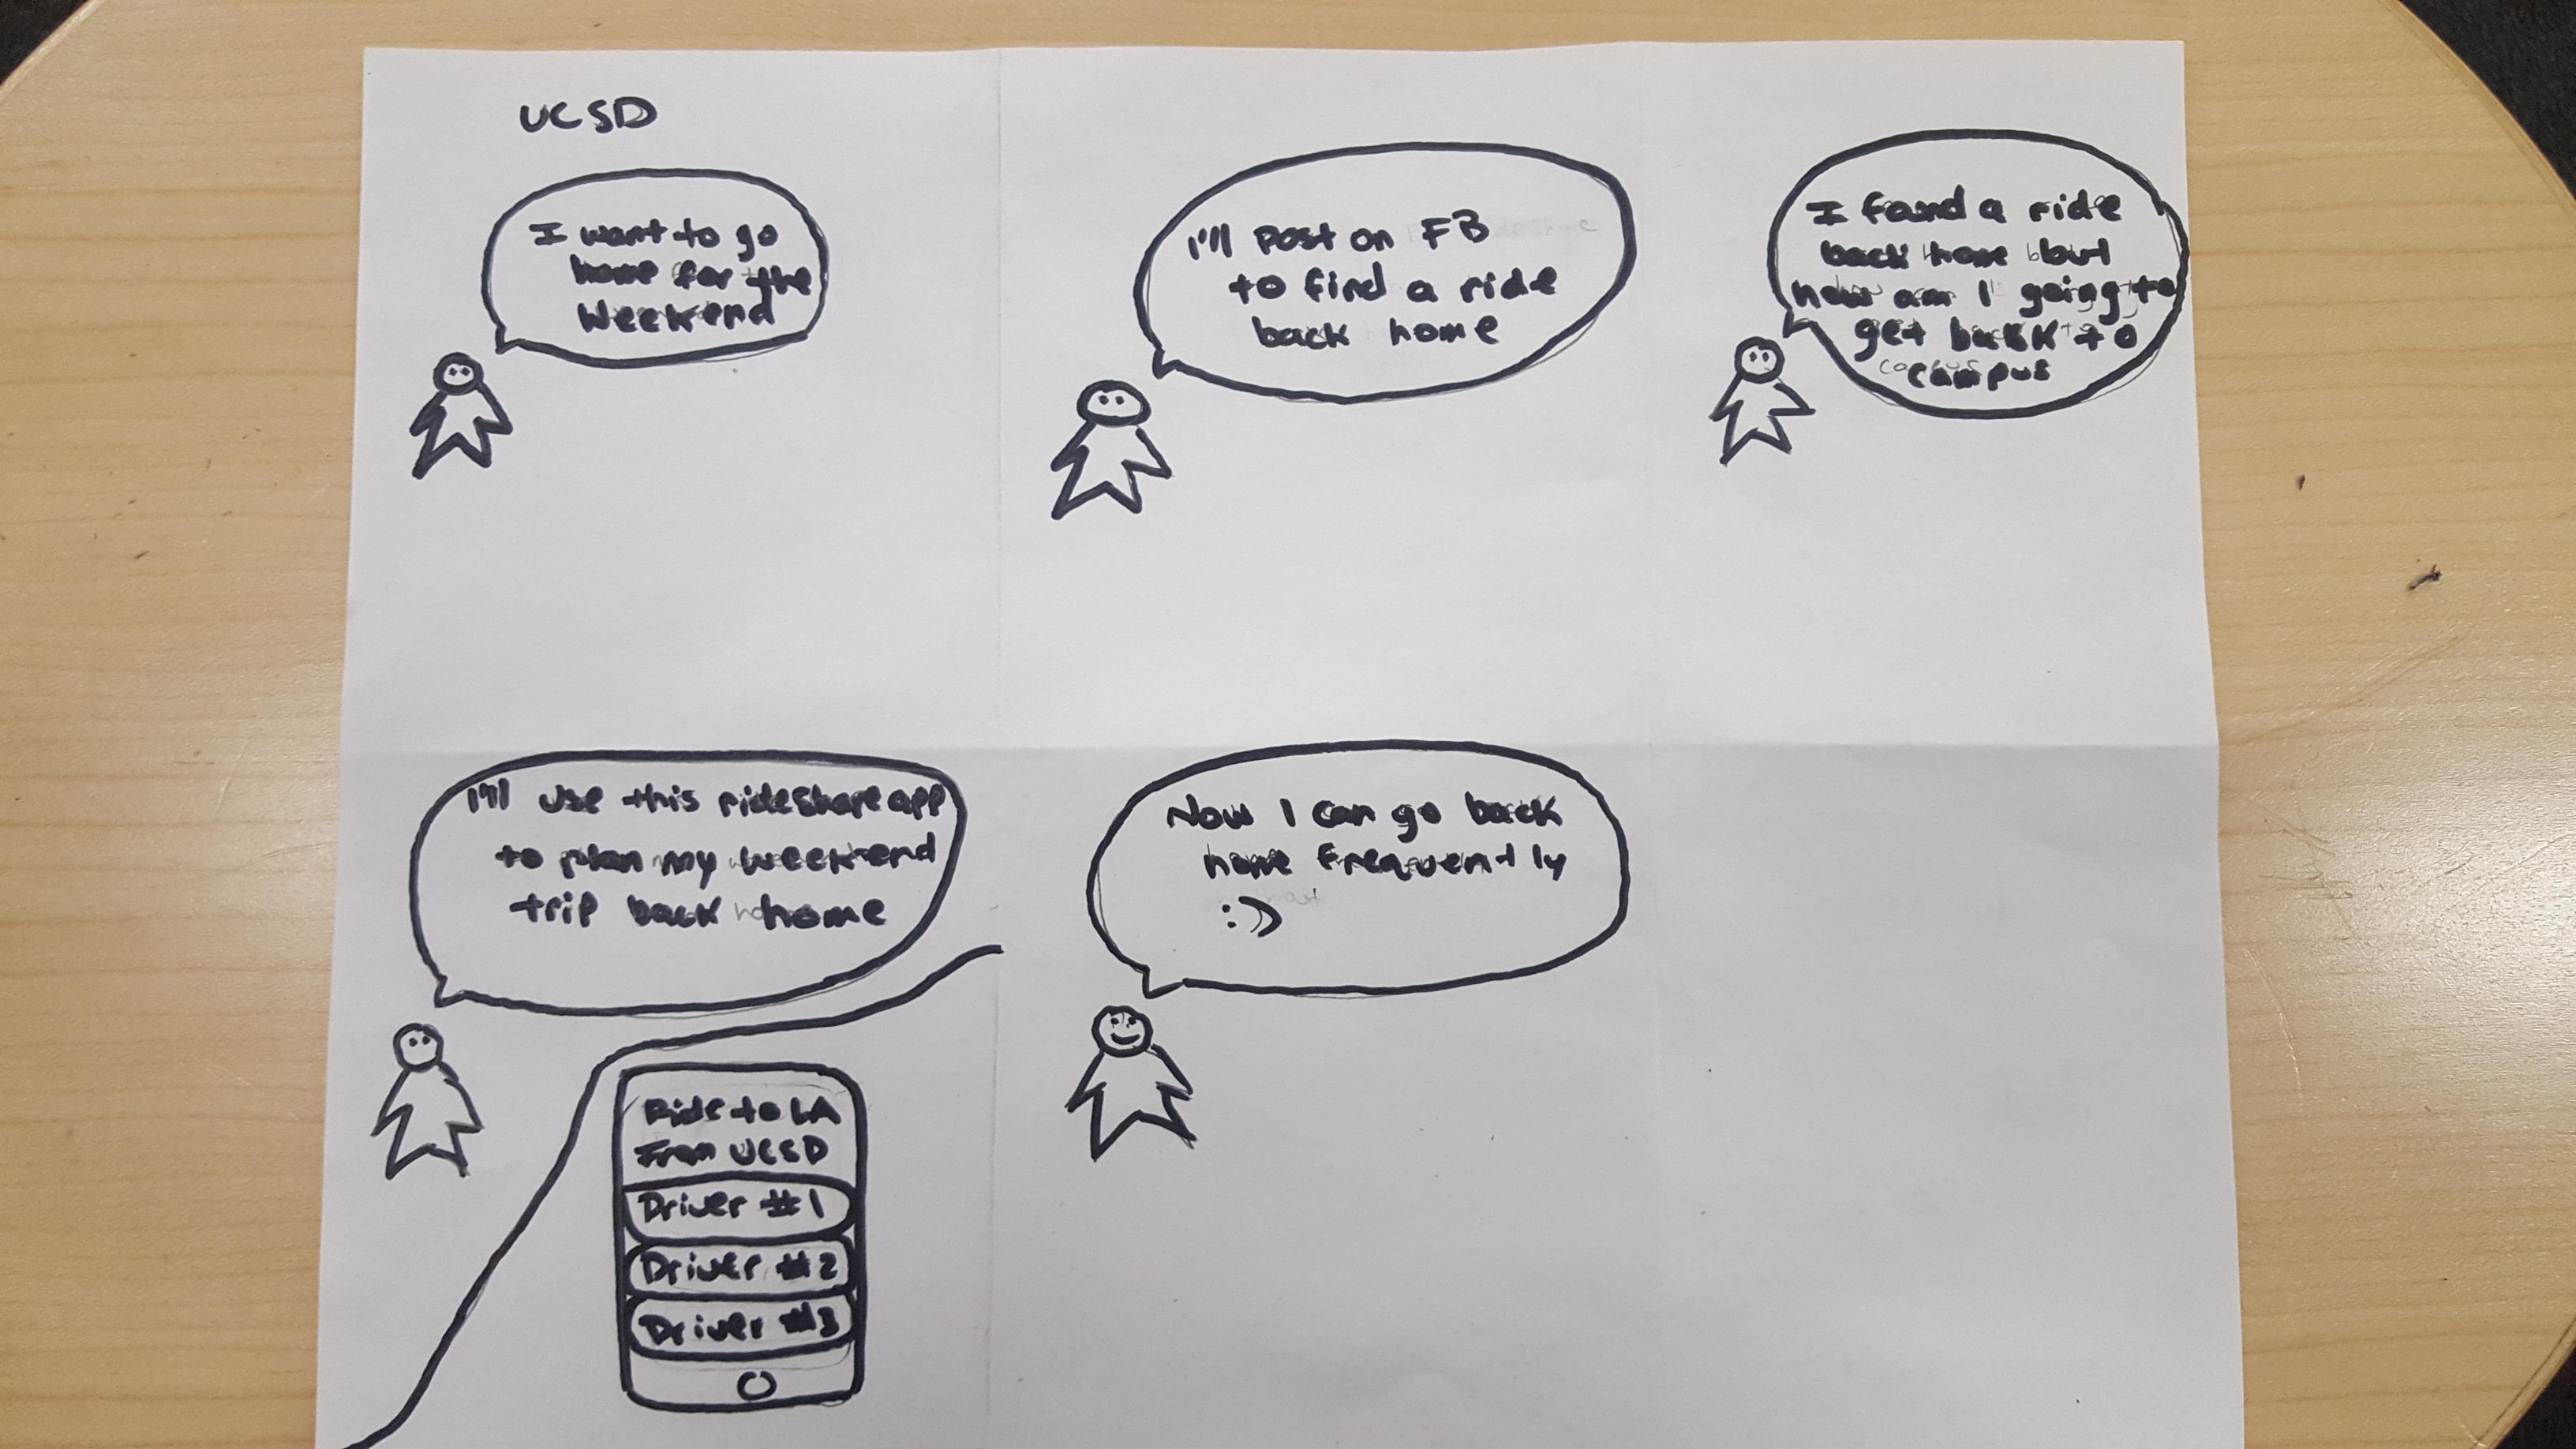 UCSD
I want to go
home for the
weekend
I'll post on FB
to find a ride
back home
I found a ride
back home but
how am I going to
get back to
campus
I'll use this rideshare app
to plan my weekend
trip back home
Ride to LA
From UCSD
Driver #1
Driver #2
Driver #3
Now I can go back
home frequently
:)